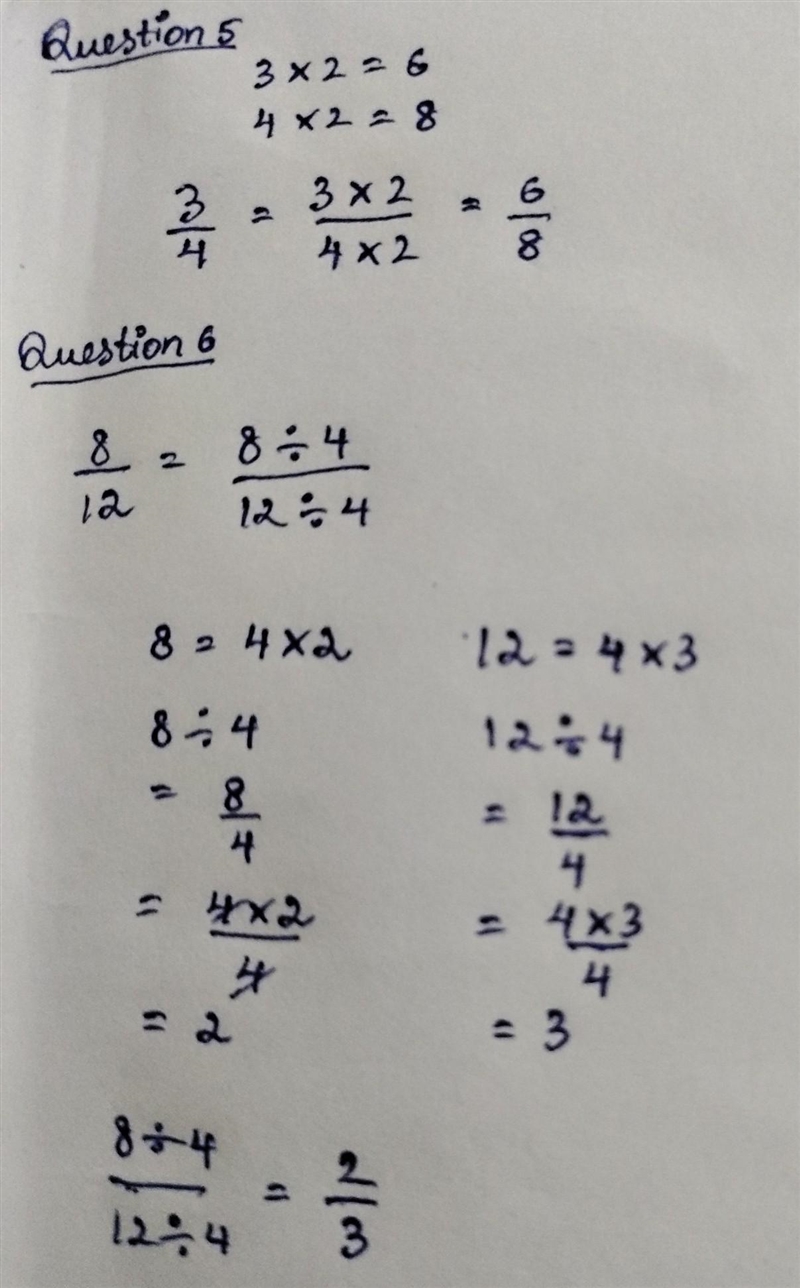 Question 5
3 × 2 = 6
4 × 2 = 8
3/4 = (3 × 2)/(4 × 2) = 6/8
Question 6
8/12 = (8 ÷ 4)/(12 ÷ 4)
8 = 4 × 2    12 = 4 × 3
8 ÷ 4    12 ÷ 4
= 8/4    = 12/4
= (4 × 2)/4    = (4 × 3)/4
= 2    = 3
(8 ÷ 4)/(12 ÷ 4) = 2/3